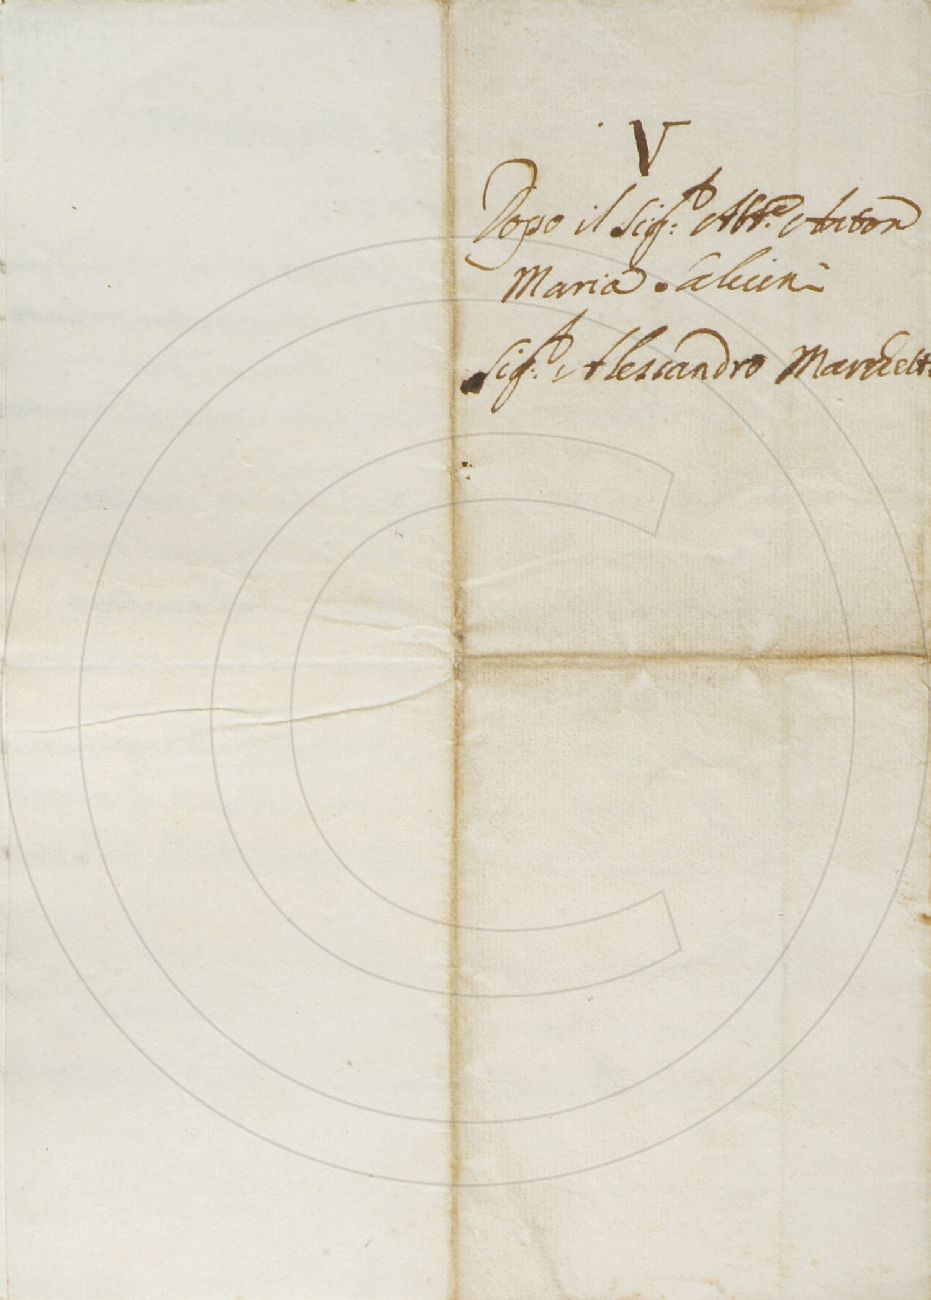 V
Dopo il Sig.r Ab.te Anton
Maria Salvini
Sig.r Alessandro Marchetti